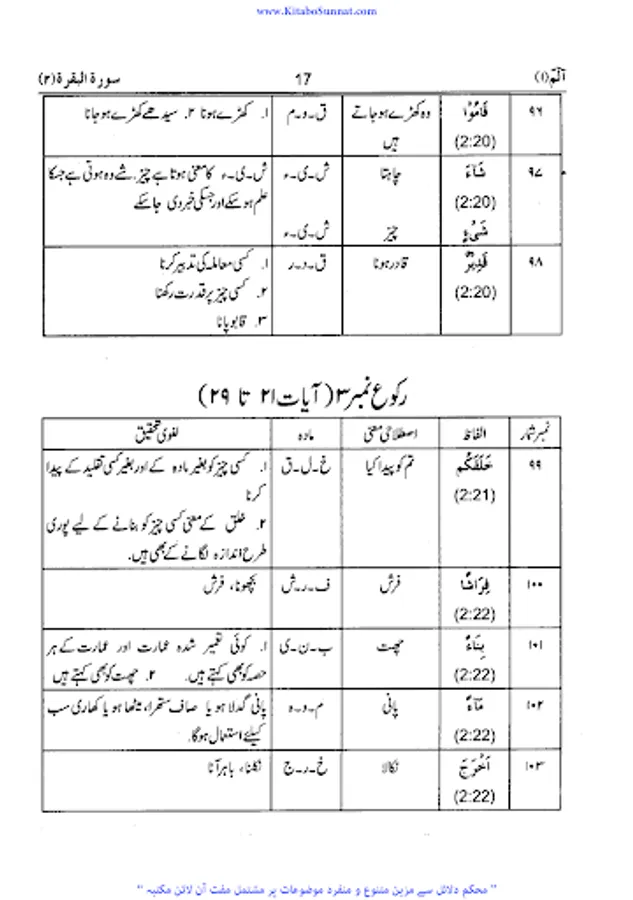 www.KitaboSunnat.com
آلٓمّ (۱) 17 سورة البقرة (۲)
۹۶ قَامُوْا وہ کھڑے ہو جاتے ق ۔ و ۔ م ۱. کھڑے ہونا ۲. سیدھے کھڑے ہو جانا
(2:20) ہیں
۹۷ شَاءَ چاہتا ش ۔ ی ۔ ء ش ۔ ی ۔ ء کا معنی ہوتا ہے چیز. شے وہ ہوتی ہے جسکا
(2:20) علم ہو سکے اور جسکی خبر دی جا سکے
شَیْءٍ چیز ش ۔ ی ۔ ء
۹۸ قَدِیْرٌ قادر ہونا ق ۔ د ۔ ر ۱. کسی معاملہ کی تدبیر کرنا
(2:20) ۲. کسی چیز پر قدرت رکھنا
۳. قابو پانا
رکوع نمبر ۳ (آیات ۲۱ تا ۲۹)
نمبر شمار الفاظ اصطلاحی معنی مادہ لغوی تحقیق
۹۹ خَلَقَكُم تم کو پیدا کیا خ ۔ ل ۔ ق ۱. کسی چیز کو بغیر مادہ کے اور بغیر کسی تقلید کے پیدا
(2:21) کرنا
۲. خلق کے معنی کسی چیز کو بنانے کے لیے پوری
طرح اندازہ لگانے کے بھی ہیں.
۱۰۰ فِرَاشًا فرش ف ۔ ر ۔ ش بچھونا، فرش
(2:22)
۱۰۱ بِنَاءً چھت ب ۔ ن ۔ ی ۱. کوئی تعمیر شدہ عمارت اور عمارت کے ہر
(2:22) حصہ کو بھی کہتے ہیں. ۲. چھت کو بھی کہتے ہیں
۱۰۲ مَآءً پانی م ۔ و ۔ ہ پانی گدلا ہو یا صاف ستھرا، میٹھا ہو یا کھاری سب
(2:22) کیلئے استعمال ہوگا.
۱۰۳ اَخْرَجَ نکالا خ ۔ ر ۔ ج نکلنا، باہر آنا
(2:22)
" محکم دلائل سے مزین متنوع و منفرد موضوعات پر مشتمل مفت آن لائن مکتبہ "